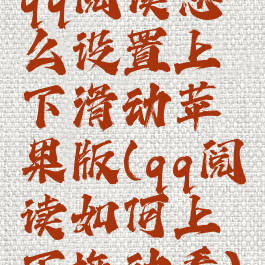 qq阅读怎
么设置上
下滑动苹
果版(qq阅
读如何上
下拖动看)